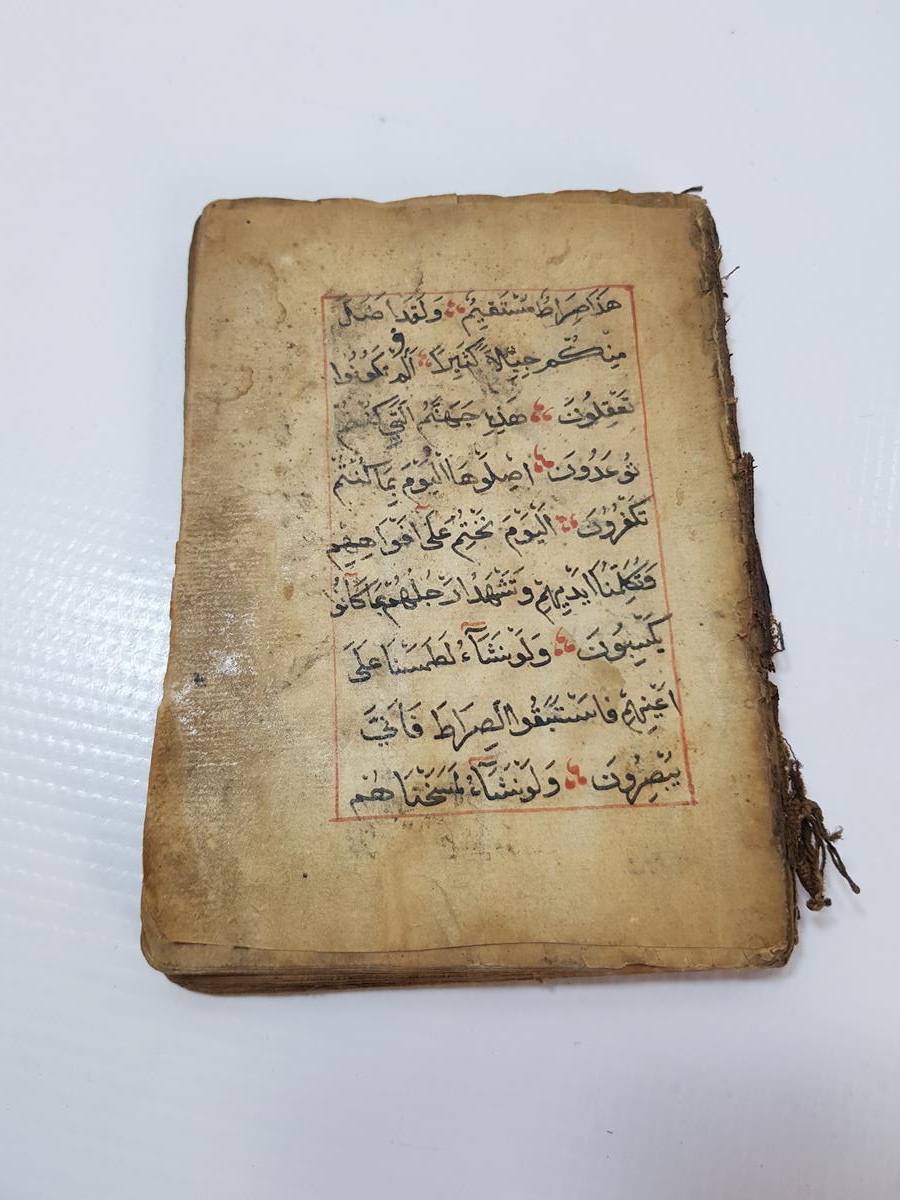 هَذَا صِرَاطٌ مُسْتَقِيمٌ وَلَقَدْ اَضَلَّ
مِنْكُمْ جِبِلًّا كَثِيرًا اَفَلَمْ تَكُونُوا
تَعْقِلُونَ هَذِهِ جَهَنَّمُ الَّتِي كُنْتُمْ
تُوعَدُونَ اِصْلَوْهَا الْيَوْمَ بِمَا كُنْتُمْ
تَكْفُرُونَ اَلْيَوْمَ نَخْتِمُ عَلَى اَفْوَاهِهِمْ
وَتُكَلِّمُنَا اَيْدِيهِمْ وَتَشْهَدُ اَرْجُلُهُمْ بِمَا كَانُوا
يَكْسِبُونَ وَلَوْ نَشَآءُ لَطَمَسْنَا عَلَى
اَعْيُنِهِمْ فَاسْتَبَقُوا الصِّرَاطَ فَاَنَّى
يُبْصِرُونَ وَلَوْ نَشَآءُ لَمَسَخْنَاهُمْ